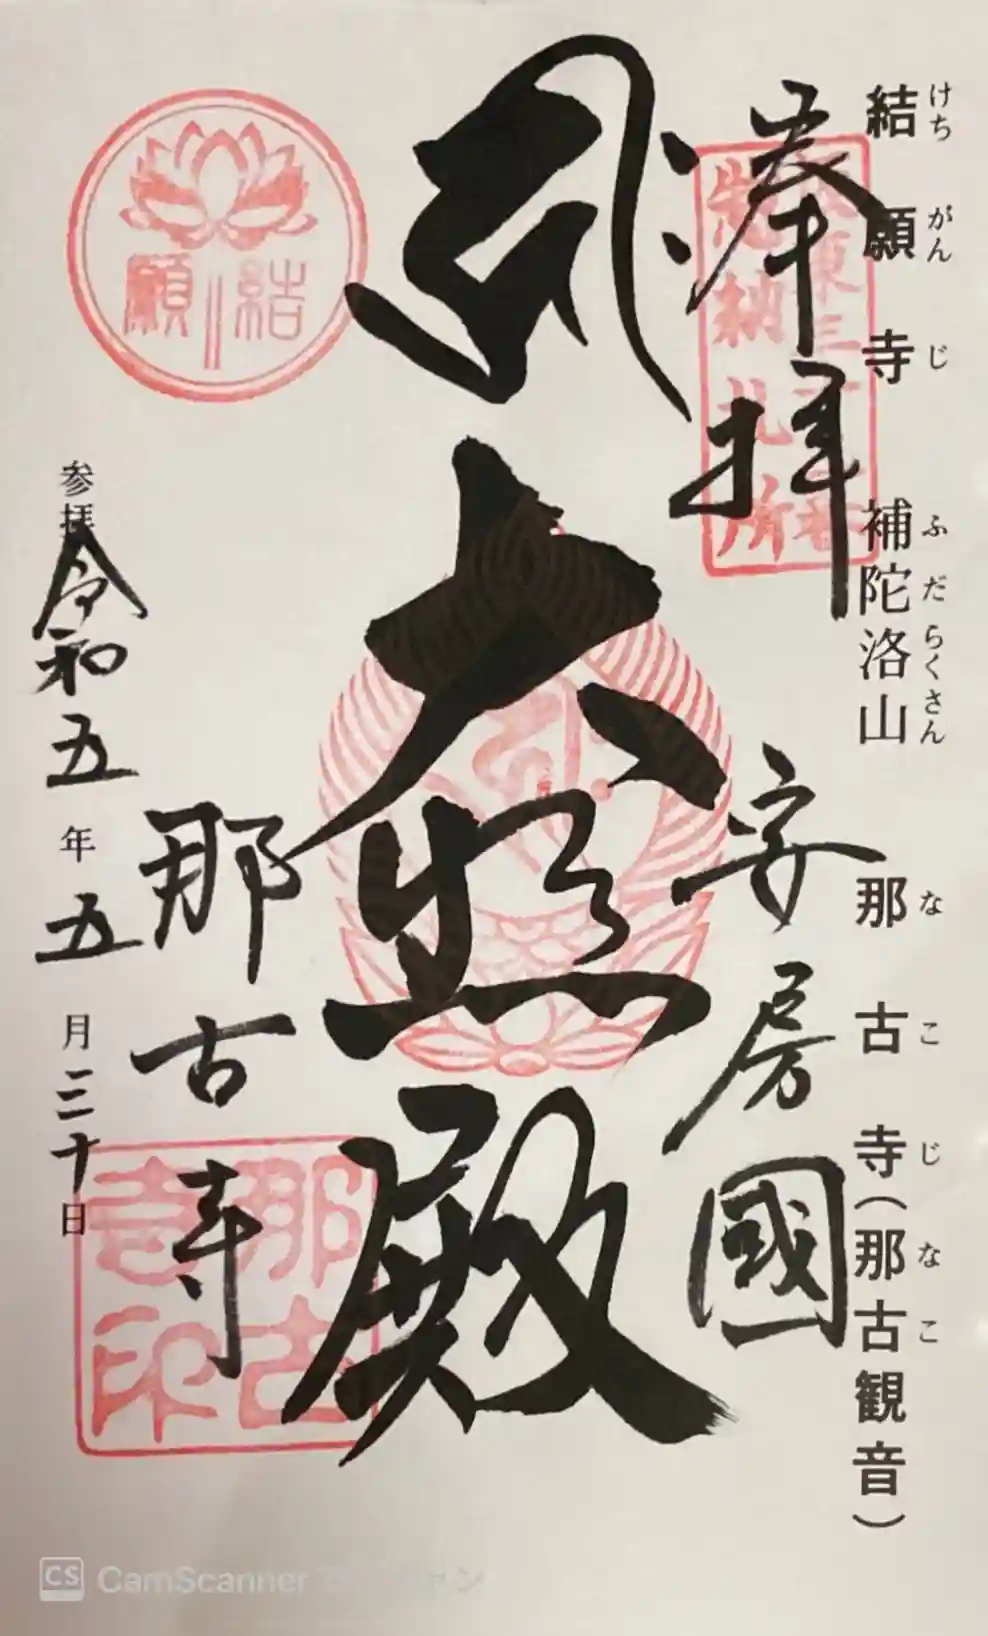 結願寺 補陀洛山 那古寺(那古観音)
けちがんじ ふだらくさん なこじ なこ
奉拝
安房國
大悲殿
那古寺
参拝 令和五年五月三十日
結願
納札所
那古寺印
CamScanner